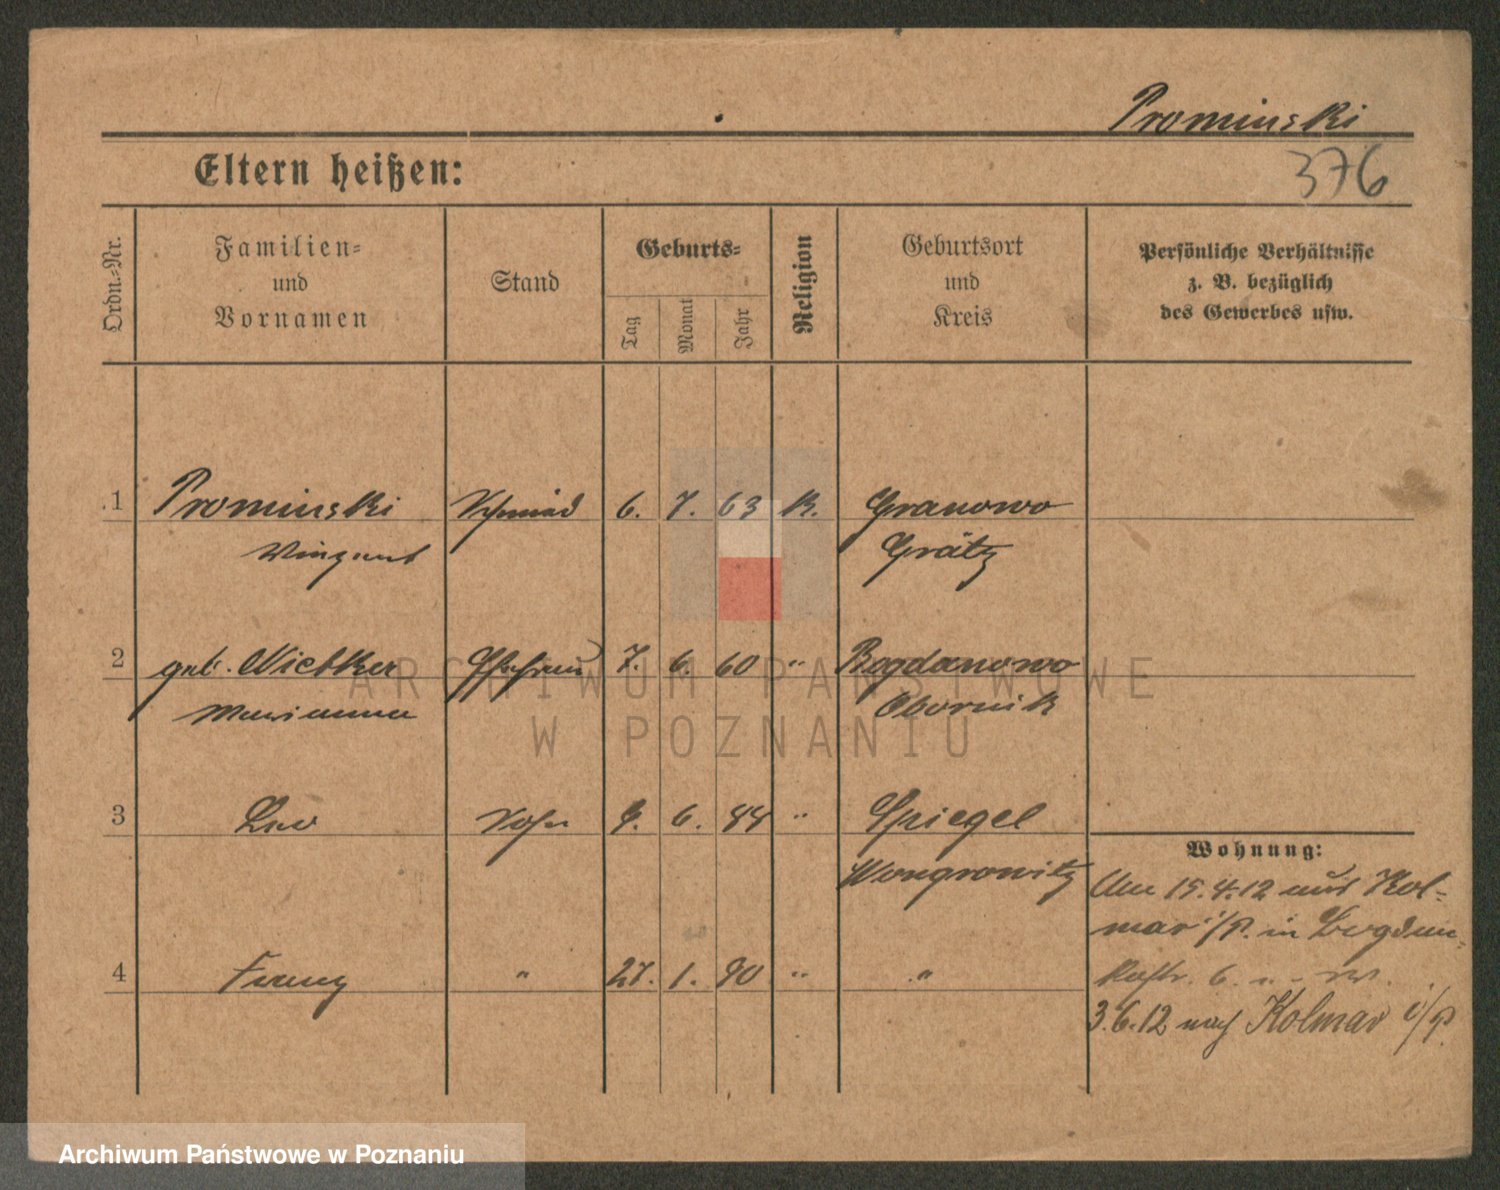 Prominski
376
Eltern heißen:
Ordn.-Nr.
Familien-
und
Vornamen
Stand
Geburts-
Tag
Monat
Jahr
Religion
Geburtsort
und
Kreis
Persönliche Verhältnisse
z. B. bezüglich
des Gewerbes usw.
1 Prominski Schmied 6. 7. 63 K. Granowo
Vinzent Grätz
2 geb. Ehefrau 7. 6. 60 " Bogdanowo
Marianna Obornik
ARCHIWUM PAŃSTWOWE
W POZNANIU
3 Leo Sohn 9. 6. " Spiegel
Wohnung:
Wongrowitz Am 15.4.12 aus Kol-
mar i/P. in
4 Franz " 27. 1. 90 " "
6.
3.6.12 nach Kolmar i/P.
Archiwum Państwowe w Poznaniu